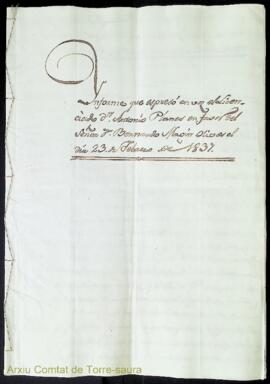 Informe que espresó en voz el Licen-
ciado Dn. Antonio Planes en favor del
Señor Dn. Bernardo Magin Olives el
dia 23 de Febrero de 1837.
Arxiu Comtat de Torre-saura